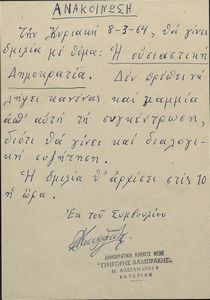 ΑΝΑΚΟΙΝΩΣΗ
Τήν Κυριακή 8-3-64, θά γίνει
ὁμιλία μέ θέμα: Ἡ οὐσιαστική
Δημοκρατία. Δέν πρέπει νά
λείψει κανένας καί καμμία
ἀπ' αὐτή τή συγκέντρωση,
διότι θά γίνει καί διαλογι-
κή συζήτηση.
Ἡ ὁμιλία θ' ἀρχίσει στίς 10
ἡ ὥρα.
Ἐκ τοῦ Συμβουλίου
ΔΗΜΟΚΡΑΤΙΚΗ ΚΙΝΗΣΙΣ ΝΕΩΝ
"ΓΡΗΓΟΡΗΣ ΛΑΜΠΡΑΚΗΣ"
Μ. ΑΛΕΞΑΝΔΡΟΥ
ΚΑΤΕΡΙΝΗ